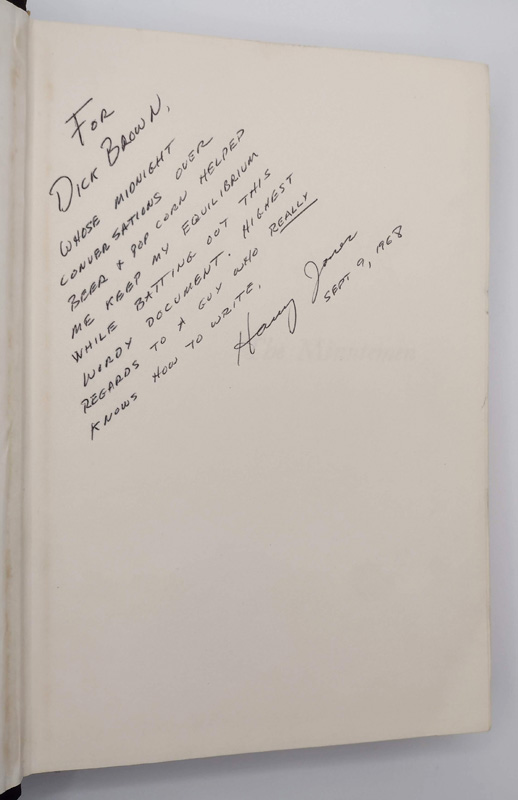 FOR
DICK BROWN,
WHOSE MIDNIGHT
CONVERSATIONS OVER
BEER & POP CORN HELPED
ME KEEP MY EQUILIBRIUM
WHILE BATTING OUT THIS
WORDY DOCUMENT. HIGHEST
REGARDS TO A GUY WHO REALLY
KNOWS HOW TO WRITE,
Harry Jones
SEPT 9, 1968
The Minutemen